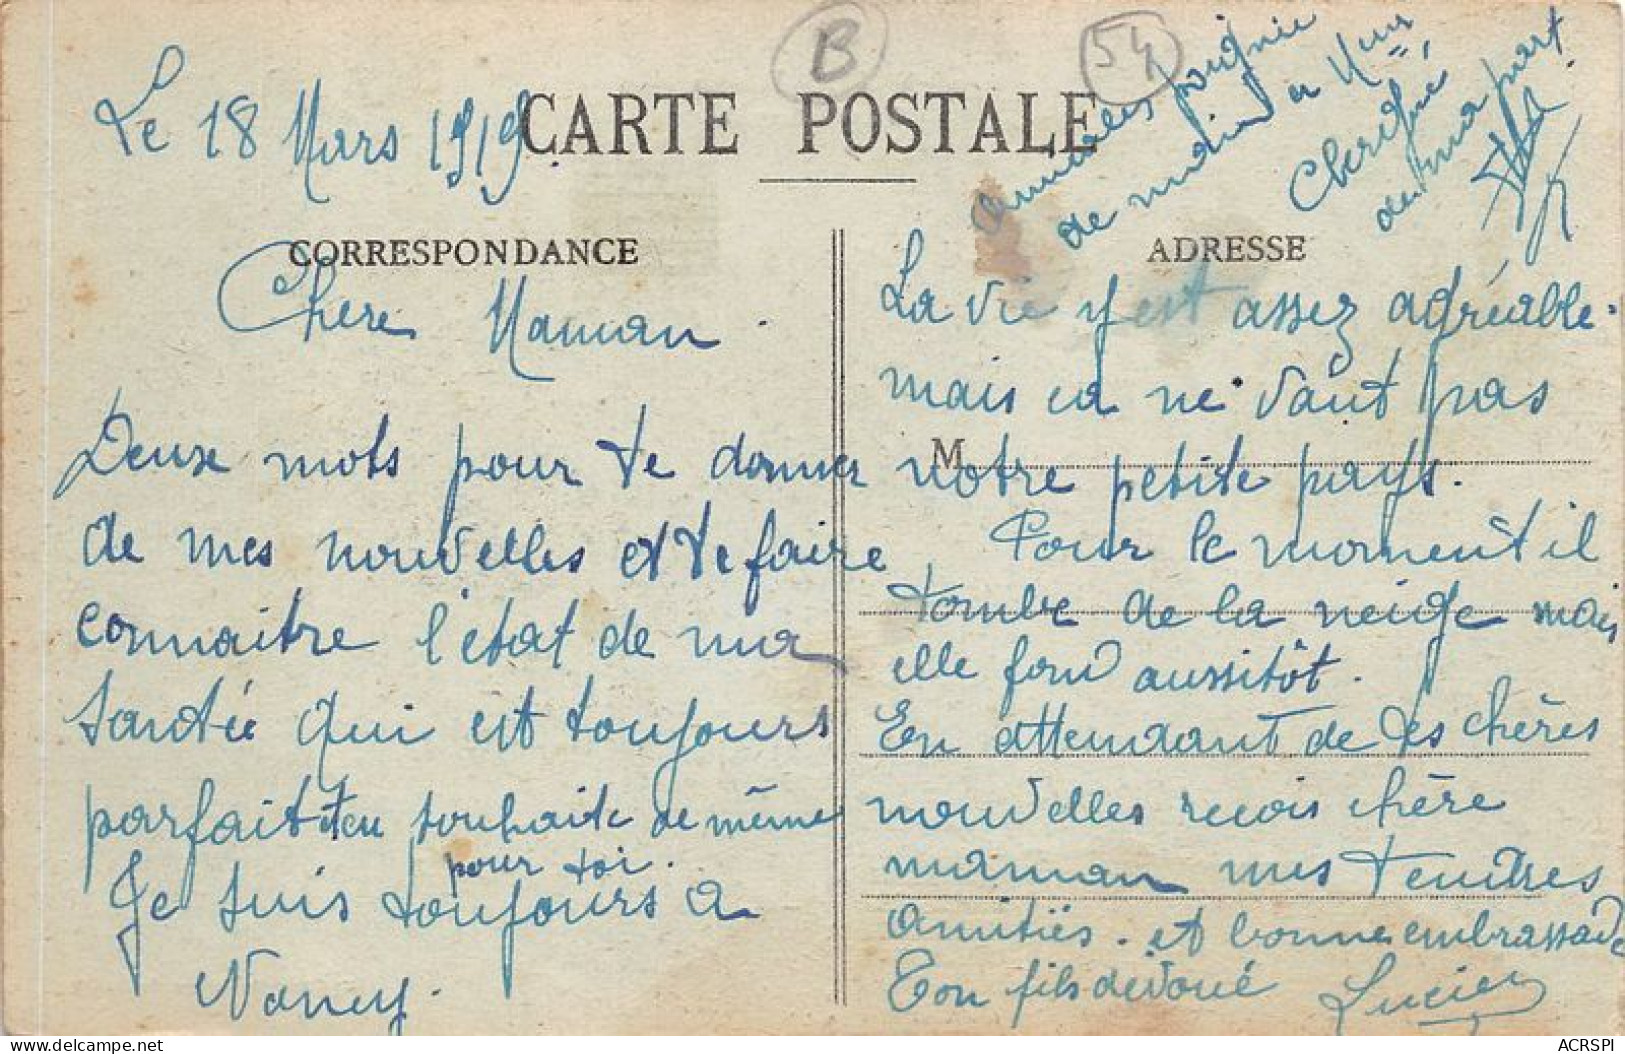 B
54
CARTE POSTALE
Le 18 Mars 1919
CORRESPONDANCE
Chere Maman.
Deux mots pour te donner
de mes nouvelles et te faire
connaitre l'état de ma
santée qui est toujours
parfait et en souhaite de même
pour toi.
Je suis toujours a
Nancy.
amicales poignée
de main a
de ma part.
ADRESSE
La vie y est assez agréable.
mais ca ne vaut pas
M
notre petite pays.
Pour le moment il
tombe de la neige mais
elle fond aussitôt.
En attendant de tes chères
nouvelles recois chère
maman mes tendres
amitiés. et bonne embrassade
Ton fils dévoué Lucien
ACRSPI